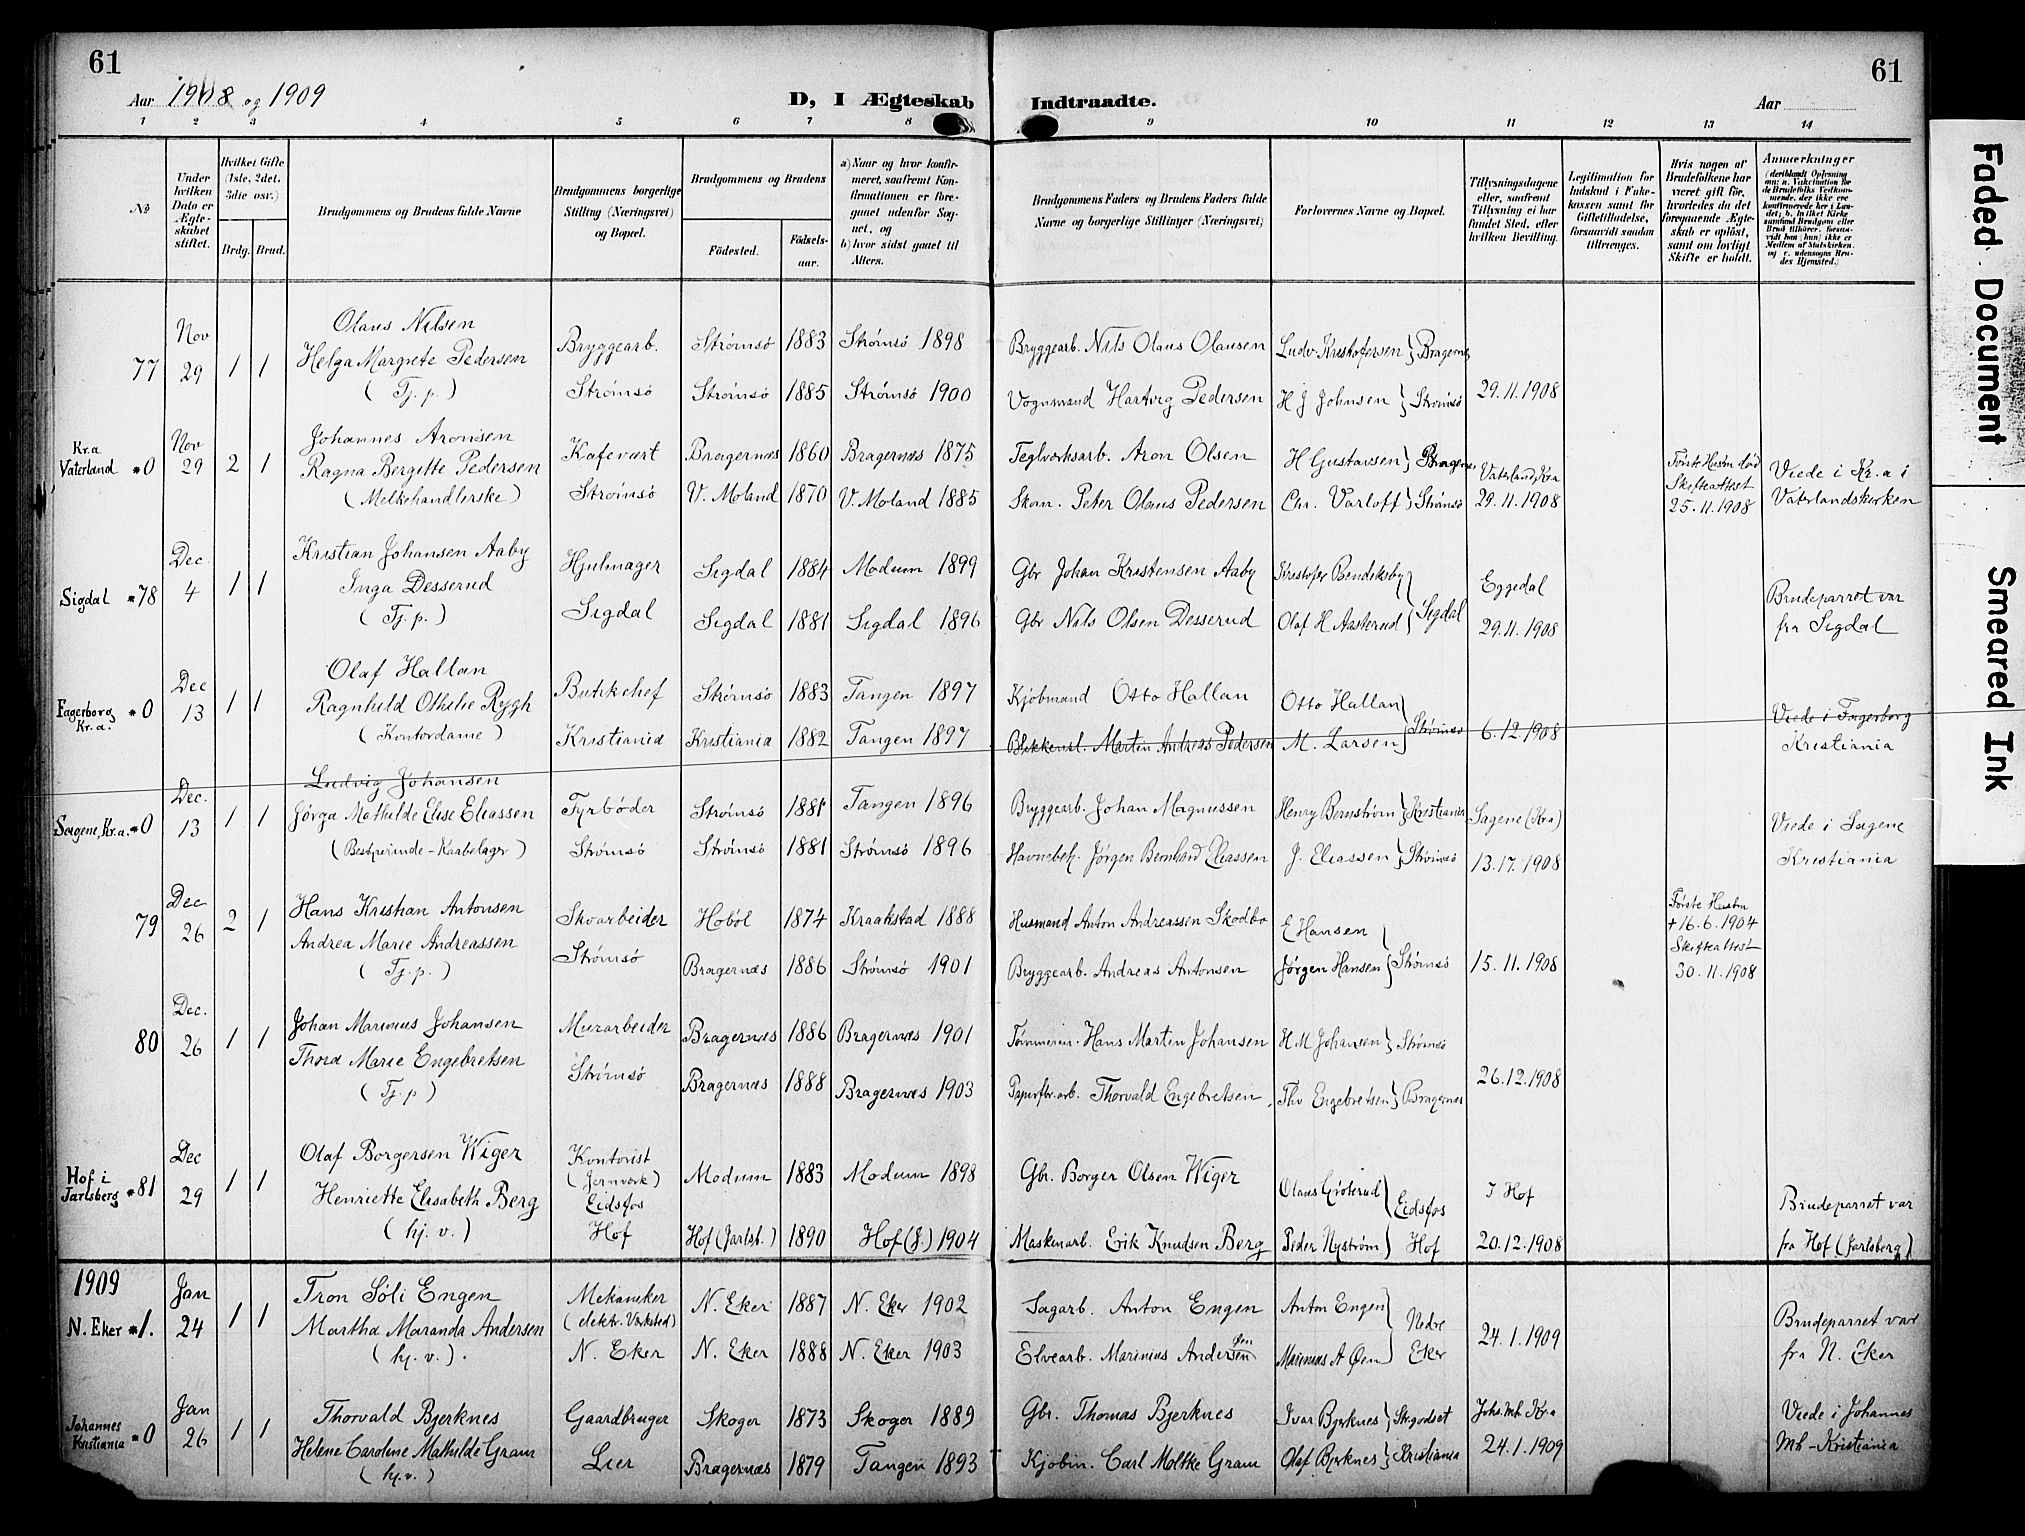 61
61
Aar 1908 og 1909
D, I Ægteskab Indtraadte.
Aar
1 2 3 4 5 6 7 8 9 10 11 12 13 14
No
Under hvilken Dato er Ægteskabet stiftet.
Hvilket Gifte (1ste, 2det. 3die osv.)
Brdg. Brud.
Brudgommens og Brudens fulde Navne
Brudgommens borgerlige Stilling (Næringsvei) og Bopæl.
Brudgommens og Brudens
Födested. Födselsaar.
a) Naar og hvor konfirmeret, saafremt Konfirmationen er foregaaet udenfor Sognet, og
b) hvor sidst gaaet til Alters.
Brudgommens Faders og Brudens Faders fulde Navne og borgerlige Stillinger (Næringsvei)
Forlovernes Navne og Bopæl.
Tillysningsdagene eller, saafremt Tillysning ei har fundet Sted, efter hvilken Bevilling.
Legitimation for Indskud i Enkekassen samt for Giftetilladelse, forsaavidt saadan tiltrænges.
Hvis nogen af Brudefolkene har været gift før, hvorledes da det foregaaende Ægteskab er oplöst, samt om lovligt Skifte er holdt.
Anmærkninger (deriblandt Oplysning om: a. Vakcination for de Brudefolks Vedkommende, der ikke ere konfirmerede her i Landet; b. hvilket Kirkesamfund Brudgom eller Brud tilhörer, forsaavidt han (hun) ikke er Medlem af Statskirken. og c. udensogns Brudes Hjemsted.)
77 Nov 29 1 1 Olaus Nilsen Bryggearb. Strømsö 1883 Strømsö 1898 Bryggearb. Nils Olaus Olausen Ludv. Kristofersen } Bragernes
Helga Margrete Pedersen (Tj. p.) Strømsö Strømsö 1885 Strømsö 1900 Vognmand Hartvig Pedersen H J Johnsen } Strømsö 29.11.1908
Kr.a Vaterland *0 Nov 29 2 1 Johannes Aronsen Kafevært Bragernæs 1860 Bragernæs 1875 Teglverksarb. Aron Olsen H Gustavsen } Bragernes Vaterland, Kr.a
Ragna Bergitte Pedersen (Melkehandlerske) Strømsö V. Moland 1870 V. Moland 1885 Skom. Peter Olaus Pedersen Chr. Varloff } Strømsö 29.11.1908 Første Hustru död Skifteattest 25.11.1908 Viede i Kr.a i Vaterlandskirken
Sigdal *78 Dec. 4 1 1 Kristian Johansen Aaby Hjulmager Sigdal 1884 Modum 1899 Gbr Johan Kristensen Aaby Kristofer Bendiksby Eggedal
Inga Desserud (Tj. p.) Sigdal Sigdal 1881 Sigdal 1896 Gbr Nils Olsen Desserud Olaf H Aasterud } Sigdal 29.11.1908 Brudeparret var fra Sigdal
Fagerborg Kr.a. *0 Dec 13 1 1 Olaf Hallan Butikchef Strömsö 1883 Tangen 1897 Kjøbmand Otto Hallan Otto Hallan
Ragnhild Othilie Rygh (Kontordame) Kristiania Kristiania 1882 Tangen 1897 Blikkensl. Martin Andreas Pedersen M. Larsen } Strømsö 6.12.1908 Viede i Fagerborg Kristiania
Sagene, Kr.a. *0 Dec. 13 1 1 Ludvig Johansen Fyrbøder Strømsö 1881 Tangen 1896 Bryggearb. Johan Magnussen Henry Bernstrøm } Kristiania Sagene (Kr.a)
Jørga Mathilde Elise Eliassen (Bestyrerinde - Kaabelager) Strømsö Strømsö 1881 Strømsö 1896 Havnebetj. Jørgen Bernhard Eliassen J. Eliassen } Strömsö 13.17.1908 Viede i Sagene Kristiania
79 Dec 26 2 1 Hans Kristian Antonsen Skoarbeider Hobøl 1874 Kraakstad 1888 Husmand Anton Andreassen Skodbo E Hansen
Andrea Marie Andreassen (Tj. p.) Strømsö Bragernæs 1886 Strømsö 1901 Bryggearb. Andreas Antonsen Jørgen Hansen } Strømsö 15.11.1908 Første Hustru + 16.6.1904 Skifteattest 30.11.1908
80 Dec. 26 1 1 Johan Marinius Johansen Murarbeider Bragernæs 1886 Bragernæs 1901 Tømmerm. Hans Martin Johansen H M Johansen } Strømsö
Thora Marie Engebretsen (Tj. p) Strømsö Bragernæs 1888 Bragernæs 1903 Papirfbr.arb. Thorvald Engebretsen Thv Engebretsen } Bragernæs 26.12.1908
Hof i Jarlsberg *81 Dec 29 1 1 Olaf Borgersen Wiger Kontorist (Jernverk) Modum 1883 Modum 1898 Gbr. Borger Olsen Wiger Olaus I Hof
Henriette Elisabeth Berg (hj. v.) Eidsfos Hof Hof (Jarlsb.) 1890 Hof (J.) 1904 Maskinarb. Erik Knudsen Berg Peder Nystrøm } Eidsfos Hof 20.12.1908 Brudeparret var fra Hof (Jarlsberg)
1909
N. Eker *1. Jan 24 1 1 Tron Sóli Engen Mekaniker (elektr. Værksted) N. Eker 1887 N. Eker 1902 Sagarb. Anton Engen Anton Engen
Martha Maranda Andersen (hj. v.). N. Eker N. Eker 1888 N. Eker 1903 Elvearb. Marinius Andersen Øen Marinius A Øen } Nedre Eker 24.1.1909 Brudeparret var fra N. Eker
Johannes Kristiania *0 Jan 26 1 1 Thorvald Bjerknes Gaardbruger Skoger 1873 Skoger 1889 Gbr. Thomas Bjerknes Ivar Bjerknes } Str.godset Johs. Mh. Kr.a
Helene Caroline Mathilde Gram (hj.v.) Lier Bragernæs 1879 Tangen 1893 Kjøbm. Carl Moltke Gram Olaf Bjerknes } Kristiania 24.1.1909 Viede i Johannes Mh-Kristiania
Faded Document
Smeared Ink